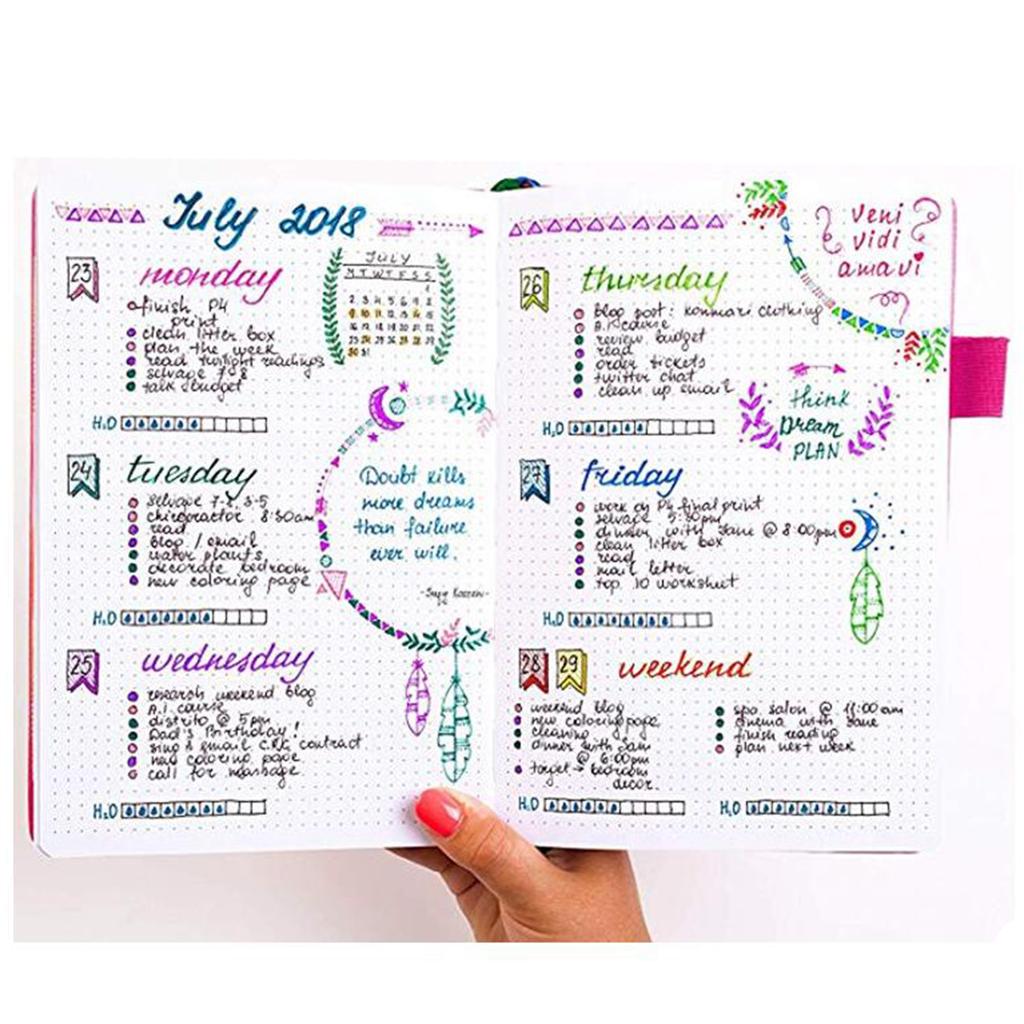 July 2018
JULY
M T W T F S S
1
2 3 4 5 6 7 8
9 10 11 12 13 14 15
16 17 18 19 20 21 22
23 24 25 26 27 28 29
30 31
23 monday
finish P4
print
clean litter box
plan the week
read twilight readings
selvage 7-8
talk budget
H2O
24 tuesday
selvage 7-8, 3-5
chiropractor 8:30am
read
blog / email
water plants
decorate bedroom
new coloring page
H2O
Doubt kills
more dreams
than failure
ever will.
25 wednesday
research weekend blog
A.I. course
distrito @ 5pm
Dad's Birthday!
sing & email contract
new coloring page
call for massage
H2O
Veni
vidi
amavi
26 thursday
blog post: konmari clothing
A.I. course
review budget
read
order tickets
twitter chat
clean up email
H2O
think
Dream
PLAN
27 friday
work on P4 final print
selvage 5:30pm
dinner with Jane @ 8:00pm
clean litter box
read
mail letter
top 10 worksheet
H2O
28 29 weekend
weekend blog
new coloring page
cleaning
dinner with Sam
@ 6:00pm
target → bedroom
decor.
H2O
spa salon @ 11:00am
cinema with Jane
finish reading
plan next week
H2O